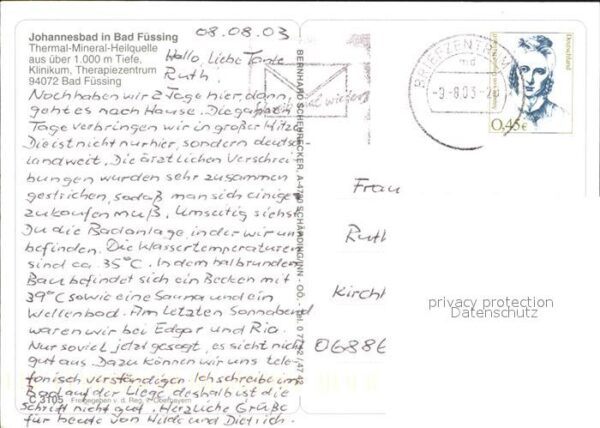 08.08.03
Johannesbad in Bad Füssing
Thermal-Mineral-Heilquelle
aus über 1.000 m Tiefe,
Klinikum, Therapiezentrum
94072 Bad Füssing
Hallo, Liebe Tante
Ruth!
Noch haben wir 2 Tage hier, dann
geht es nach Hause. Die ganzen
Tage verbringen wir in großer Hitze
Die ist nicht nur hier, sondern deutsch-
landweit. Die ärztlichen Verschrei-
bungen wurden sehr zusammen
gestrichen, sodaß man sich einiges
zukaufen muß. Umseitig siehst
Du die Badanlage, in der wir uns
befinden. Die Wassertemperaturen
sind ca. 35°C. In dem halbrunden
Bau befindet sich ein Becken mit
39°C sowie eine Sauna und ein
Wellenbad. Am letzten Sonnabend
waren wir bei Edgar und Ria.
Nur soviel jetzt gesagt, es sieht nicht
gut aus. Dazu können wir uns tele-
fonisch verständigen. Ich schreibe im
Bad auf der Liege, deshalb ist die
Schrift nicht gut. Herzliche Grüße
für heute von Hilde und Dietrich.
C 3105 Freigegeben v. d. Reg. v. Oberbayern
BERNHARD SCHEHRECKER, A-4780 SCHÄRDING/INN - OÖ. - Tel. 0 77 12 / 47 42
mal wieder!
BRIEFZENTRUM
md
-9.-8.03-20
Deutschland
0,45€
Frau
Ruth
Kirchh
06886
privacy protection
Datenschutz